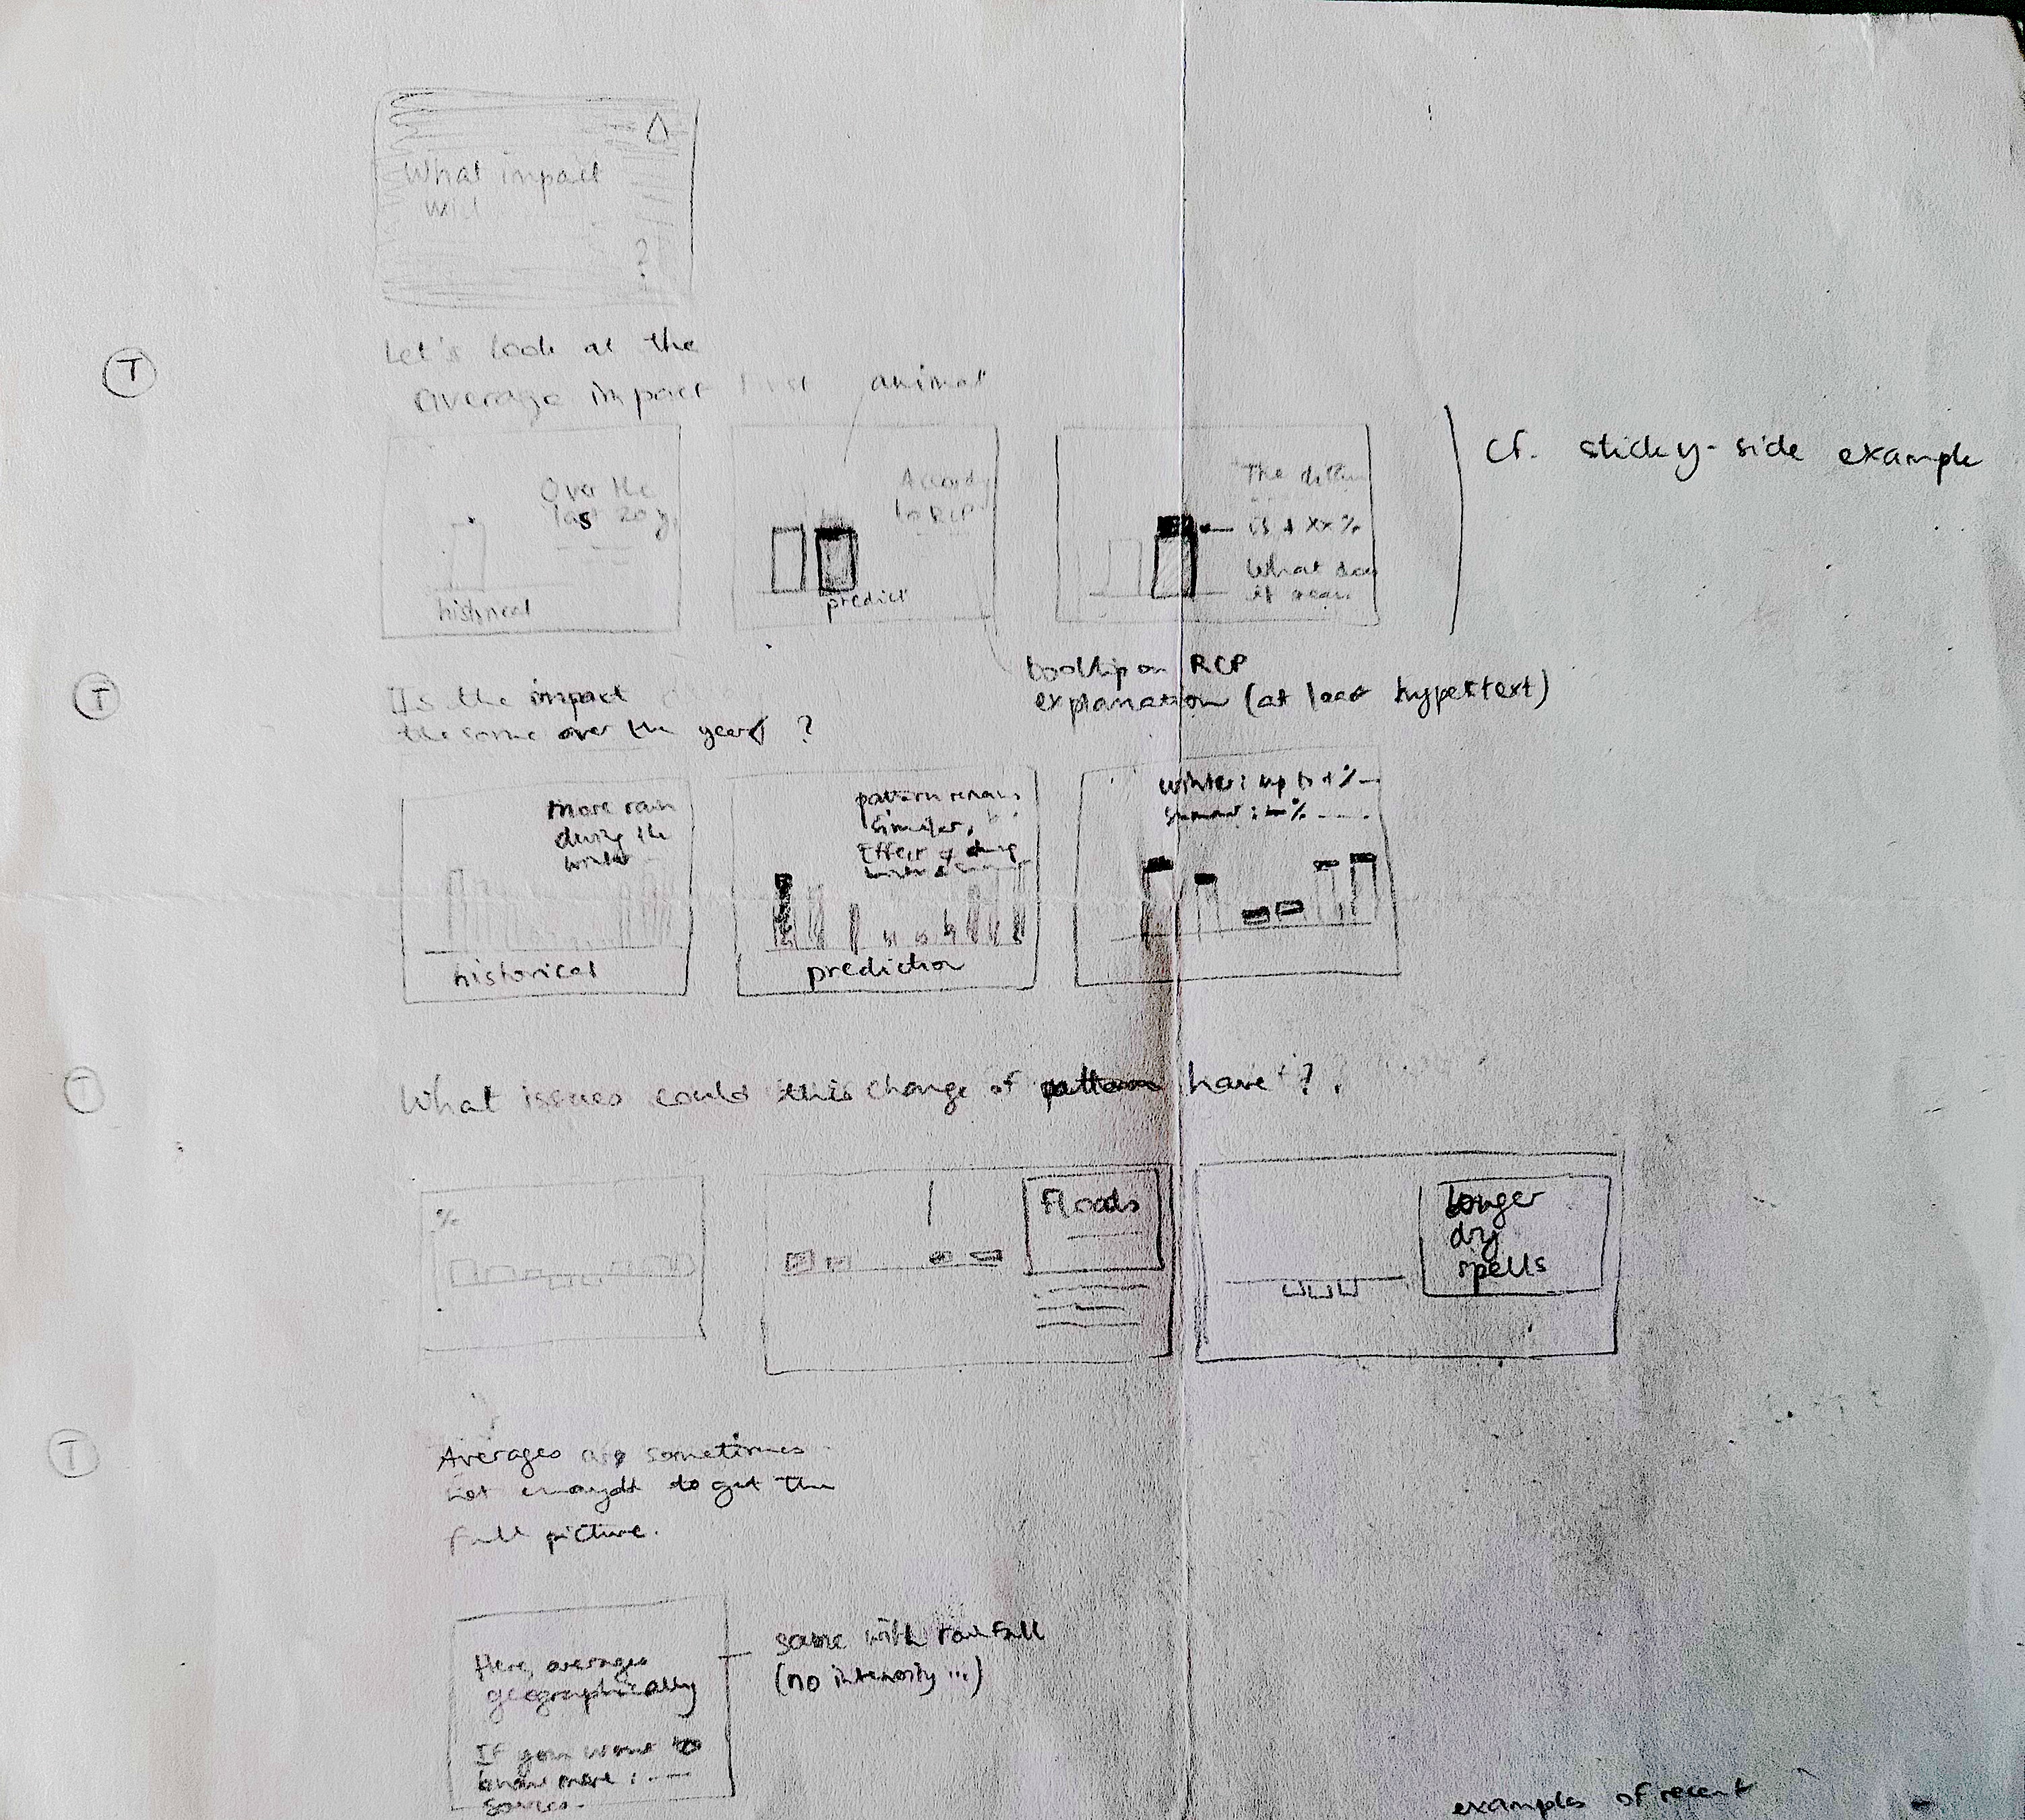 What impact
will
?
T
Let's look at the
average impact first
animat
Over the
last 20 y.
historical
to RCP
predict
The
is + xx %
What does
it mean
cf. sticky-side example
tooltip on RCP
explanation (at least hypertext)
T
Is the impact
the same over the year ?
more rain
during the
winter
historical
pattern remains
similar,
Effect
prediction
winter: up to + %
summer : - %
T
What issues could this change of pattern have ?
%
Floods
longer
dry
spells
T
Averages are sometimes
not to get the
full picture.
Here, averages
geographically
If you want to
know more :
sources.
same with rainfall
(no intensity ...)
examples of recent